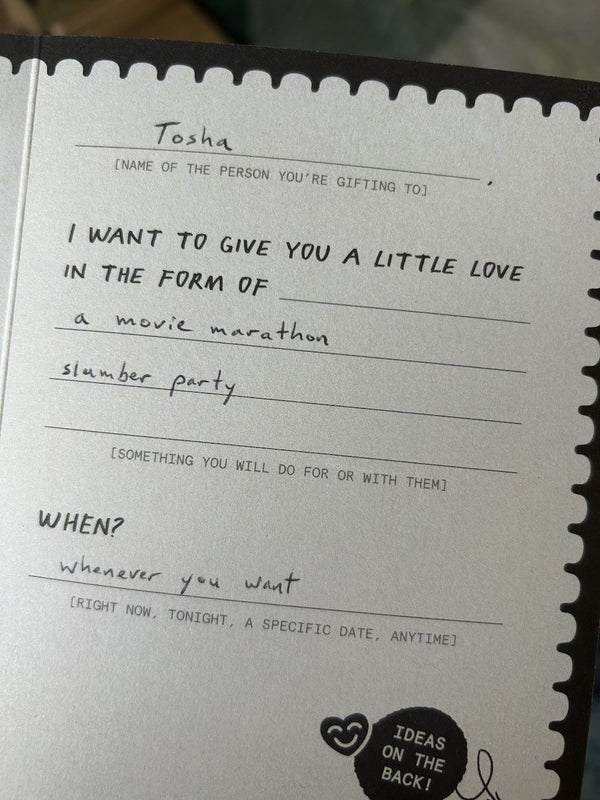 Tosha ,
[NAME OF THE PERSON YOU'RE GIFTING TO]
I WANT TO GIVE YOU A LITTLE LOVE
IN THE FORM OF
a movie marathon
slumber party
[SOMETHING YOU WILL DO FOR OR WITH THEM]
WHEN?
whenever you want
[RIGHT NOW, TONIGHT, A SPECIFIC DATE, ANYTIME]
IDEAS
ON THE
BACK!